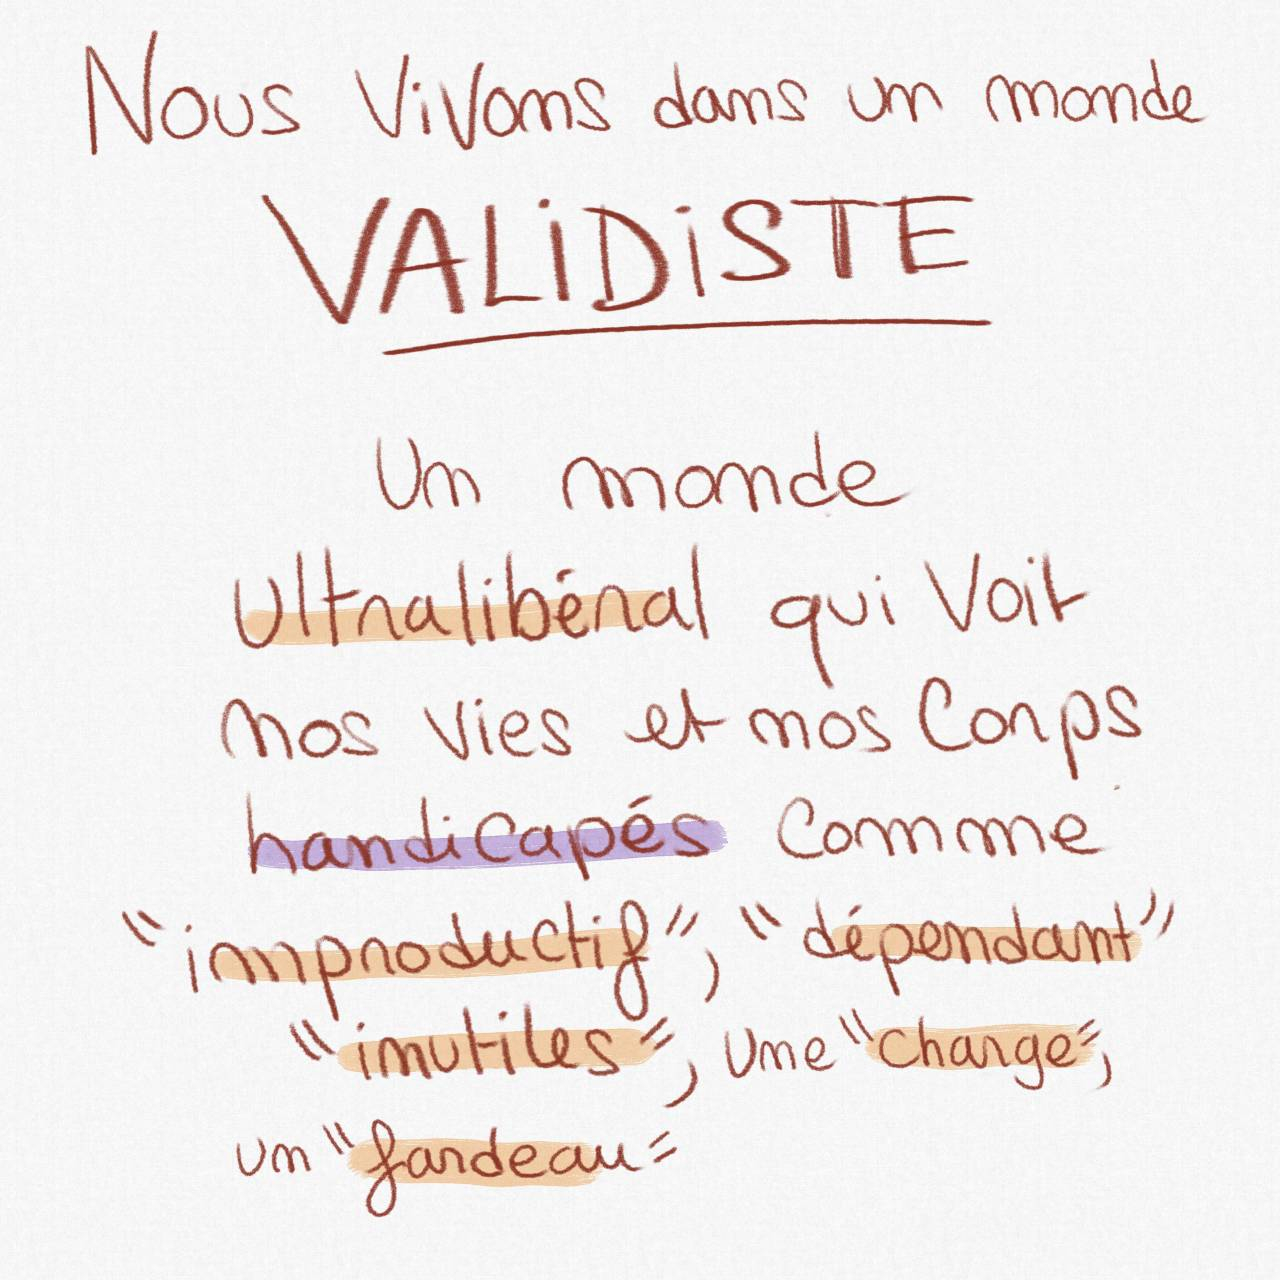 Nous vivons dans un monde
VALiDiSTE
Un monde
Ultralibéral qui voit
nos vies et nos corps
handicapés comme
"improductif", "dépendant"
"inutiles", une "charge",
un "fardeau"